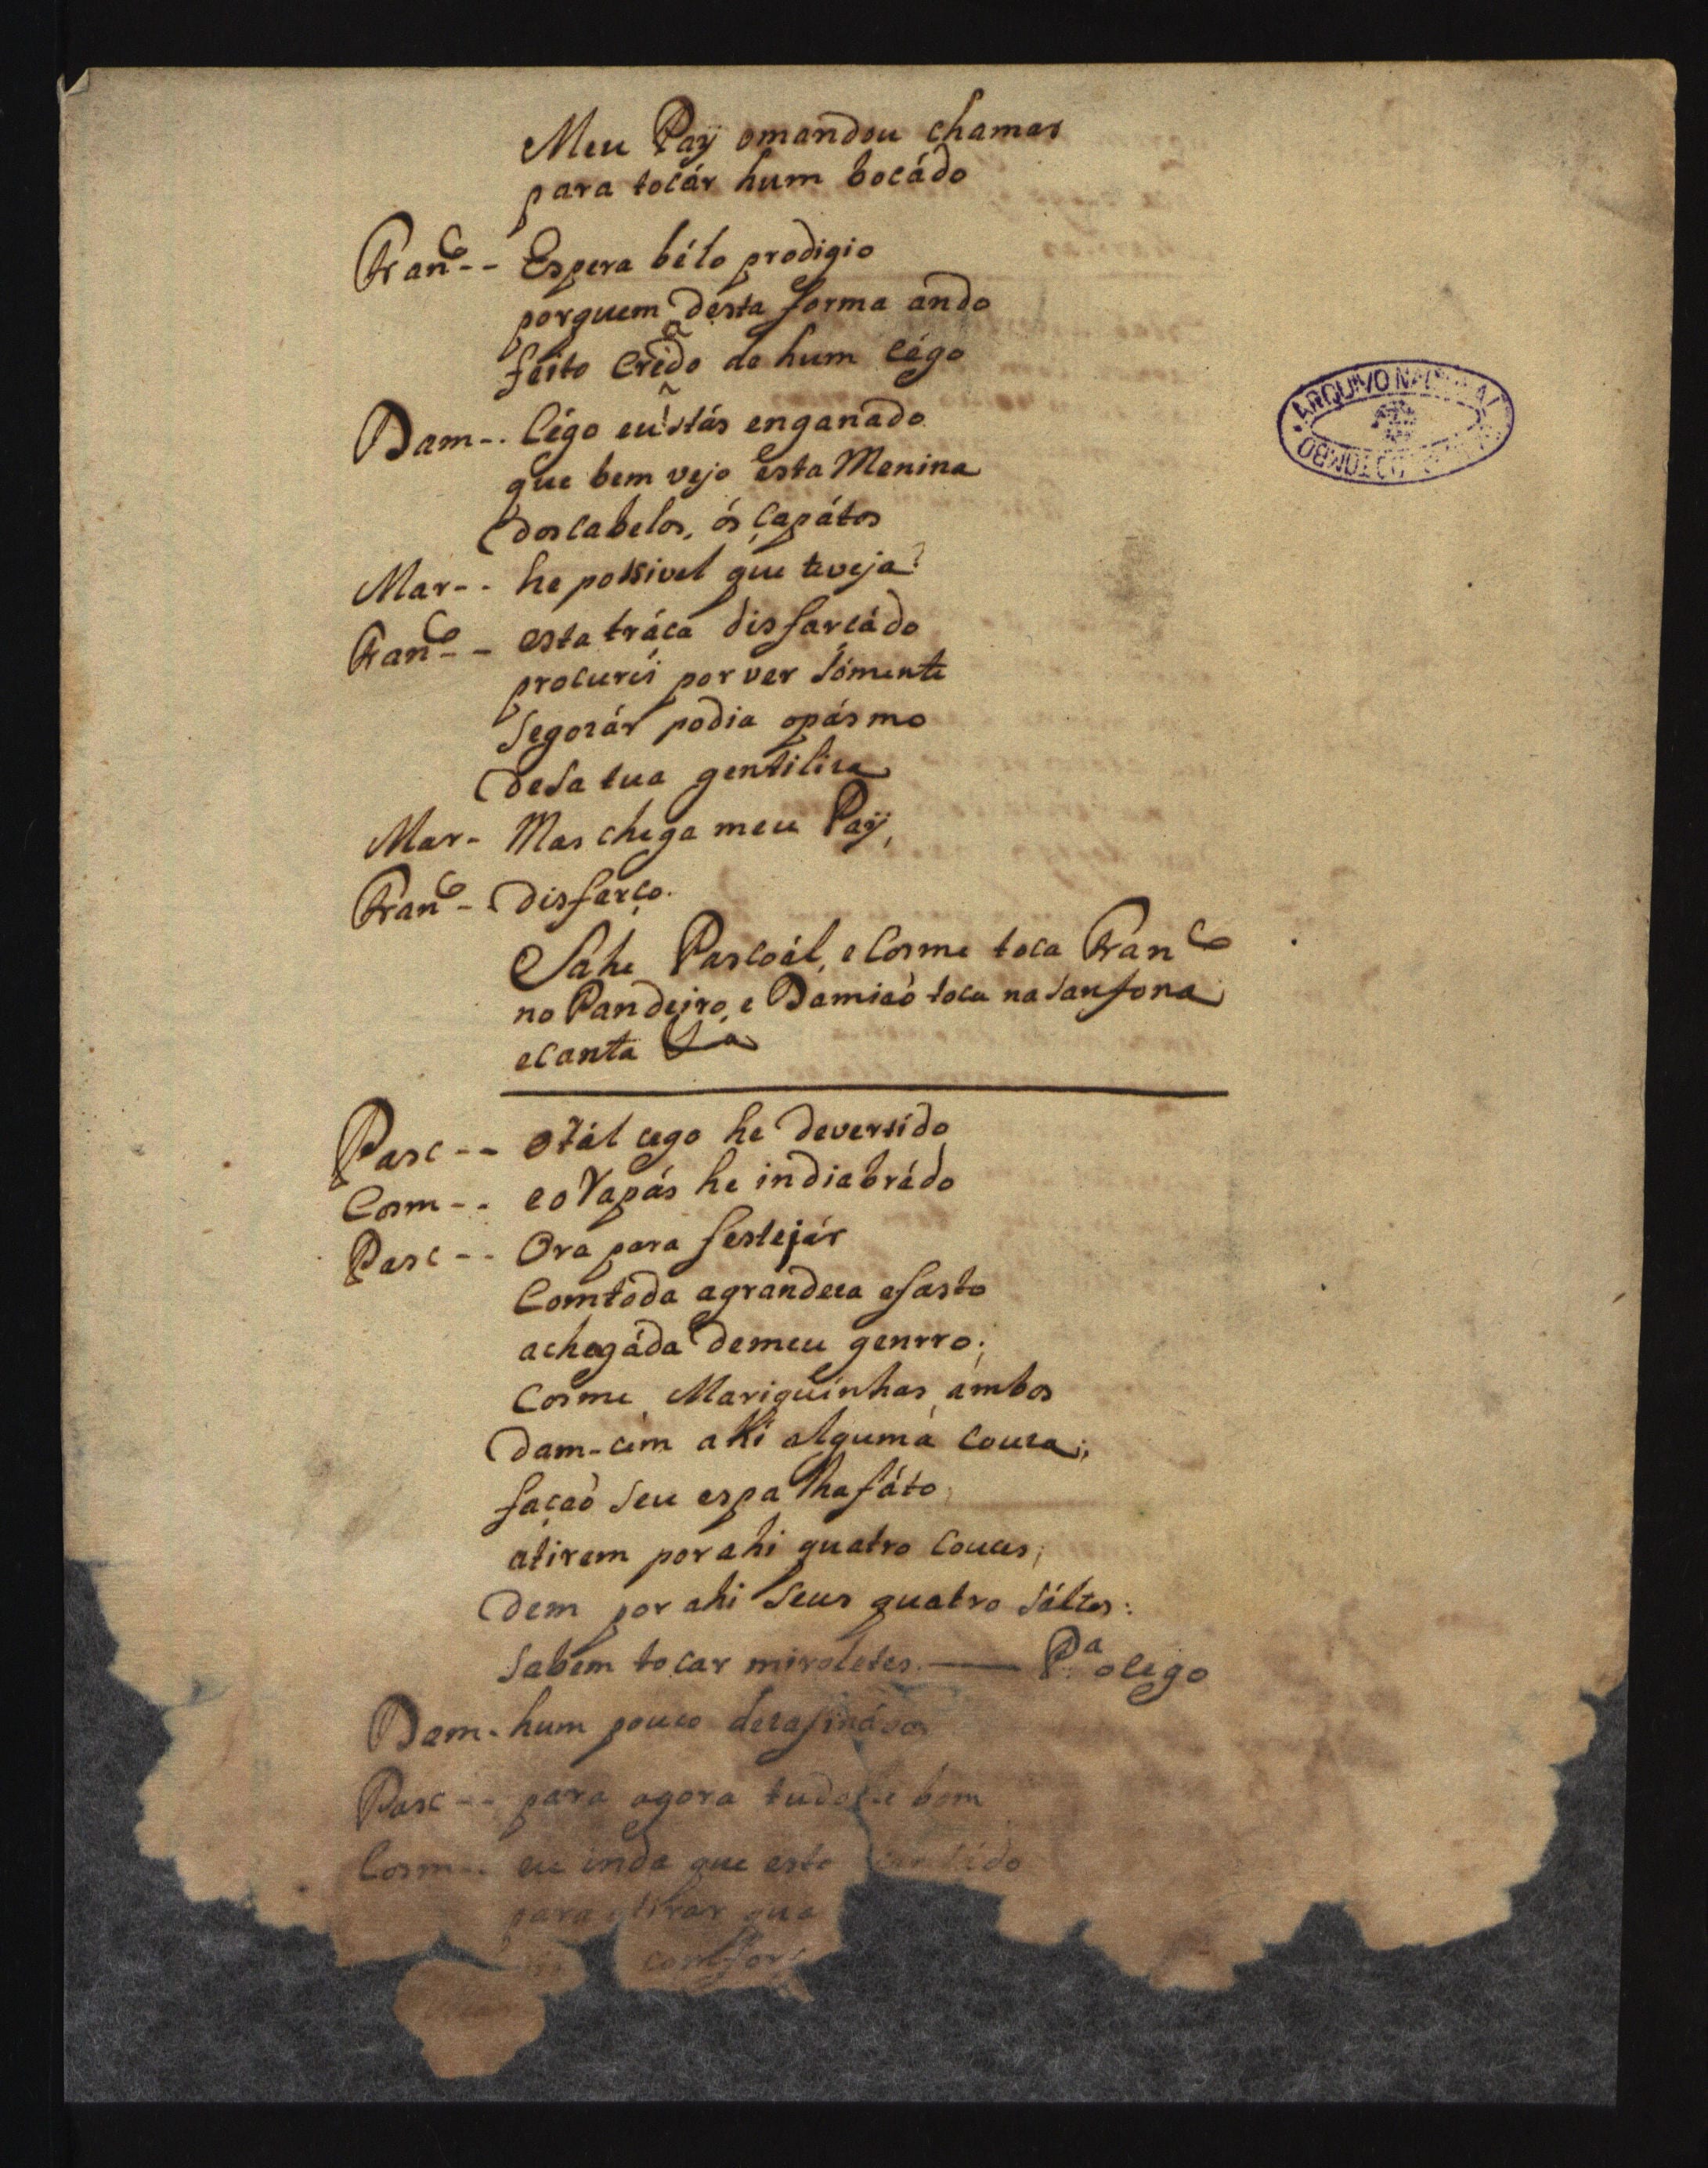 Meu Paÿ omandou chamar
para tocár hum bocádo
Fran^co -- Espera bélo prodigio
porquem desta forma ando
feito criado de hum cégo
Dam-- Cégo eu! stás enganado
que bem vejo esta Menina
dos Cabelos, ós Çapátos
Mar-- he possivel que teveja?
Fran^co -- esta tráça disfarçádo
procurei por ver sómente
segozár podia opásmo
desa tua gentileza
Mar- Mas chega meu Paÿ,
Fran^co - disfarço.
Sáhe Pascoál, e Cosme toca Fran^co
no Pandeiro, e Damiaò toca na Sanfona
ecanta
Pasc -- otál cego he devertido
Cosm -- eo Rapás he indiabrádo
Pasc -- Ora para festejár
Comtoda agrandeza efasto
achegáda demeu genrro;
Cosme, Mariquinhas, ambos
dam-cem ahi alguma couza;
façaò seu espalhafáto,
atirem porahi quatro couces;
dem por ahi seus quatro sáltos:
sabem tocar miroletes. —— P.^a ocego
Dam- hum pouco dezafinádos
Pasc -- para agora tudo he bom
Cosm -- eu inda que esto
para atirar qua
comforç
ARQUIVO NACIONAL
TOMBO